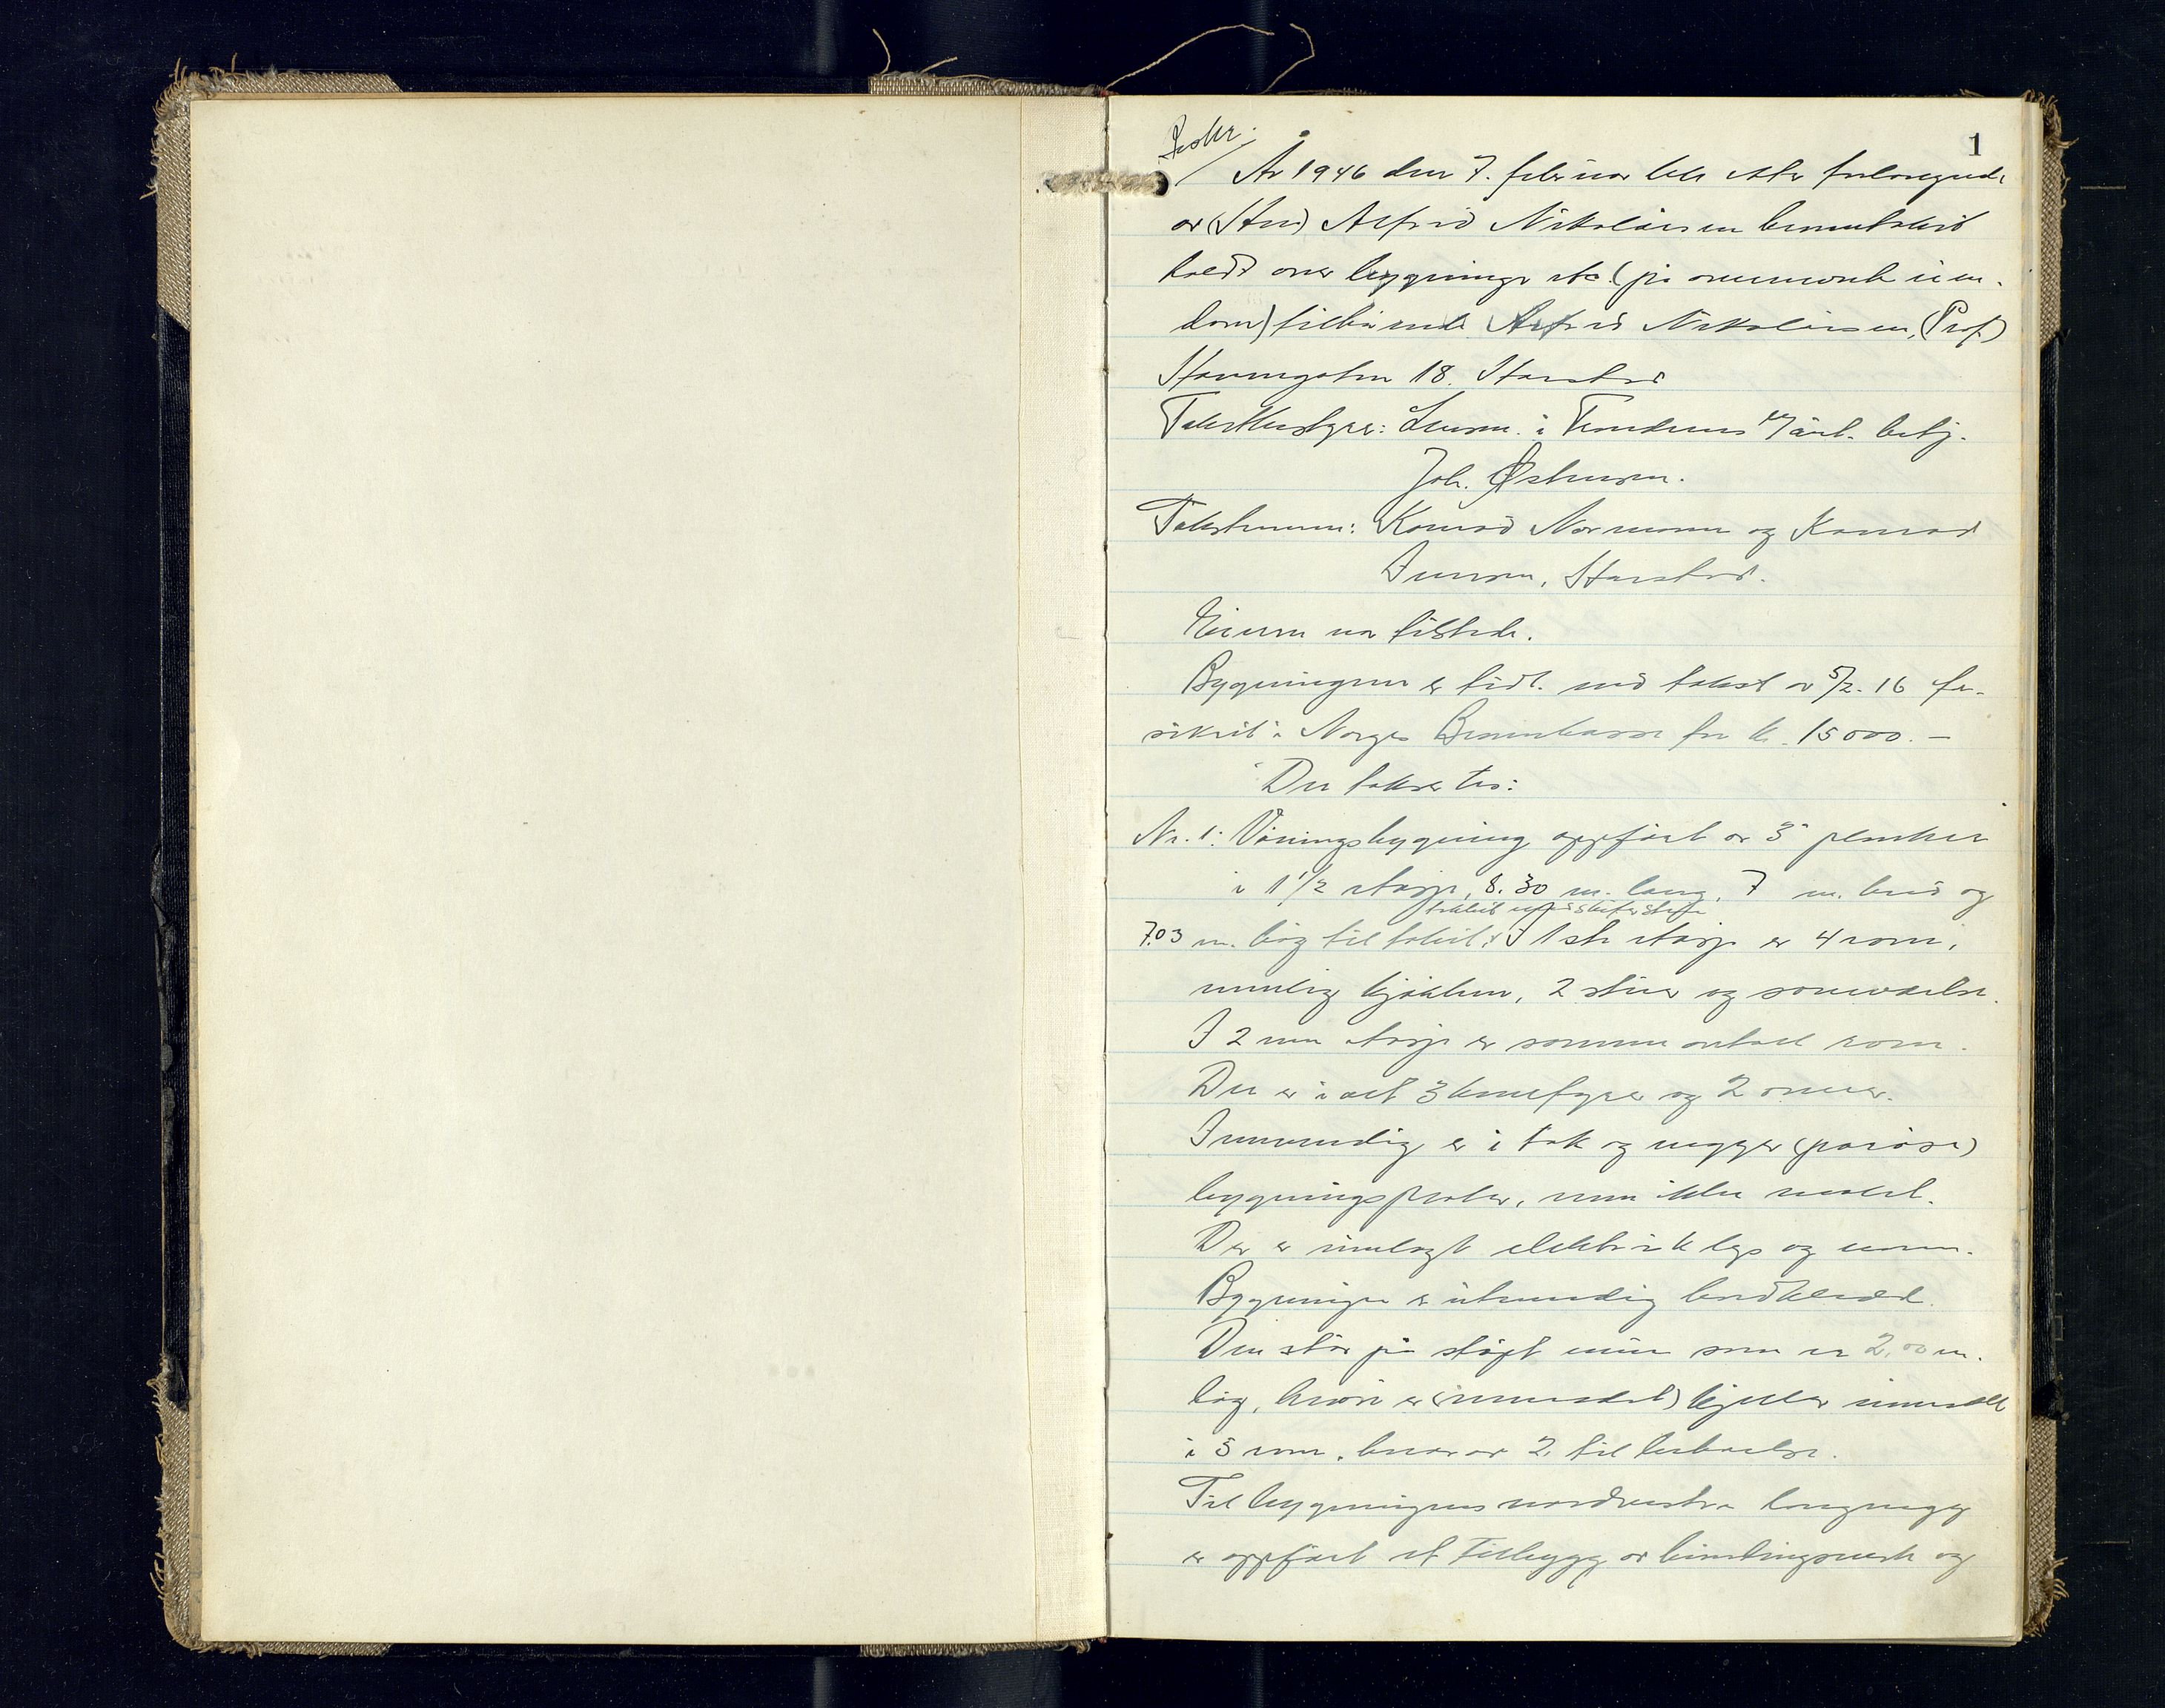 1
År 1946 den 7. februar ble etter forlangende
av (Hr.) Alfred Nikolaisen branntakst
holdt over bygninger etc. (på ovennevnte eien-
dom) tilhørende Alfred Nikolaisen, (Prof.)
Havnegaten 18. Harstad
Takstbestyrer: Lensm. i Trondenes betj.
Joh. Østensen.
Takstmenn: Konrad Normann og Konrad
Jensen, Harstad.
Eieren var tilstede.
Bygningen er tidl. ved takst av 5/2. 16 for-
sikret i Norges Brannkasse for kr. 15000.-
Der takseres:
Nr. 1: Våningsbygning oppført av 3" planker
i 1 1/2 etasje, 8.30 m. lang, 7 m. bred og
7.03 m. høg til taket. I 1ste etasje er 4 rom,
nemlig kjøkken, 2 stuer og soveværelse.
I 2nen etasje er samme antall rom.
Der er i alt 3 komfyrer og 2 ovner.
Innvendig er i tak og vegger (porøse)
bygningsplater, men ikke malt.
Der er innlagt elektrisk lys og vann.
Bygningen er utvendig bordkledd.
Den står på støpt mur som er 2.00 m.
høg, hvori er (innredet) kjeller inndelt
i 3 rom, hvorav 2 til beboelse.
Til bygningens nordvestre langvegg
er oppført et tilbygg av bindingsverk og